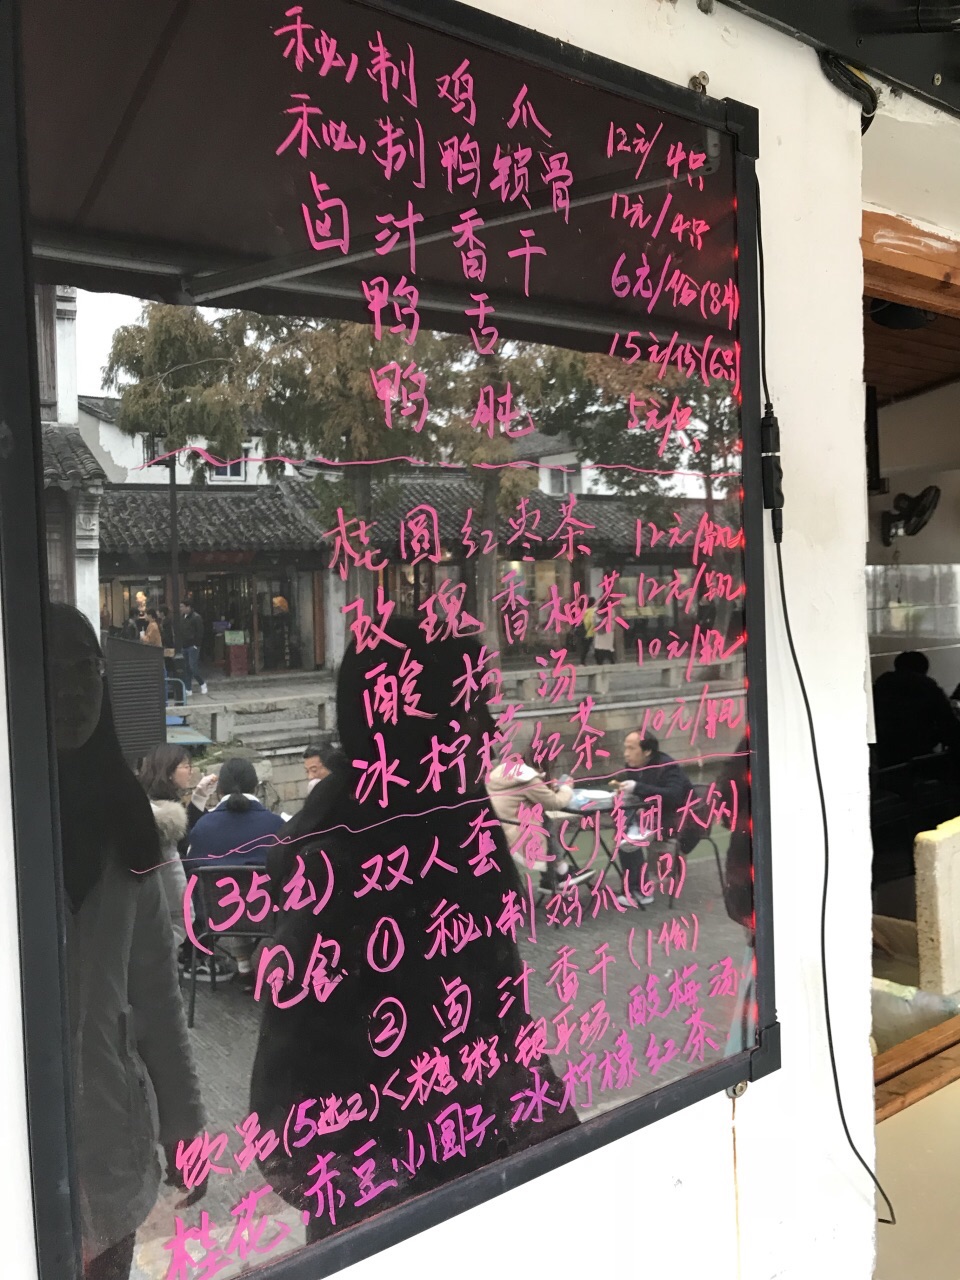 秘制鸡爪 12元/4只
秘制鸭锁骨 12元/4只
卤汁香干 6元/份(8片)
鸭舌 15元/份(6只)
鸭肫 5元/只
桂圆红枣茶 12元/瓶
玫瑰香柚茶 12元/瓶
酸梅汤 10元/瓶
冰柠檬红茶 10元/瓶
(35.元)双人套餐(可美团,大众)
包含①秘制鸡爪(6只)
②卤汁香干(1份)
饮品(5选2)<糖粥.银耳汤.酸梅汤
桂花.赤豆小圆子.冰柠檬红茶